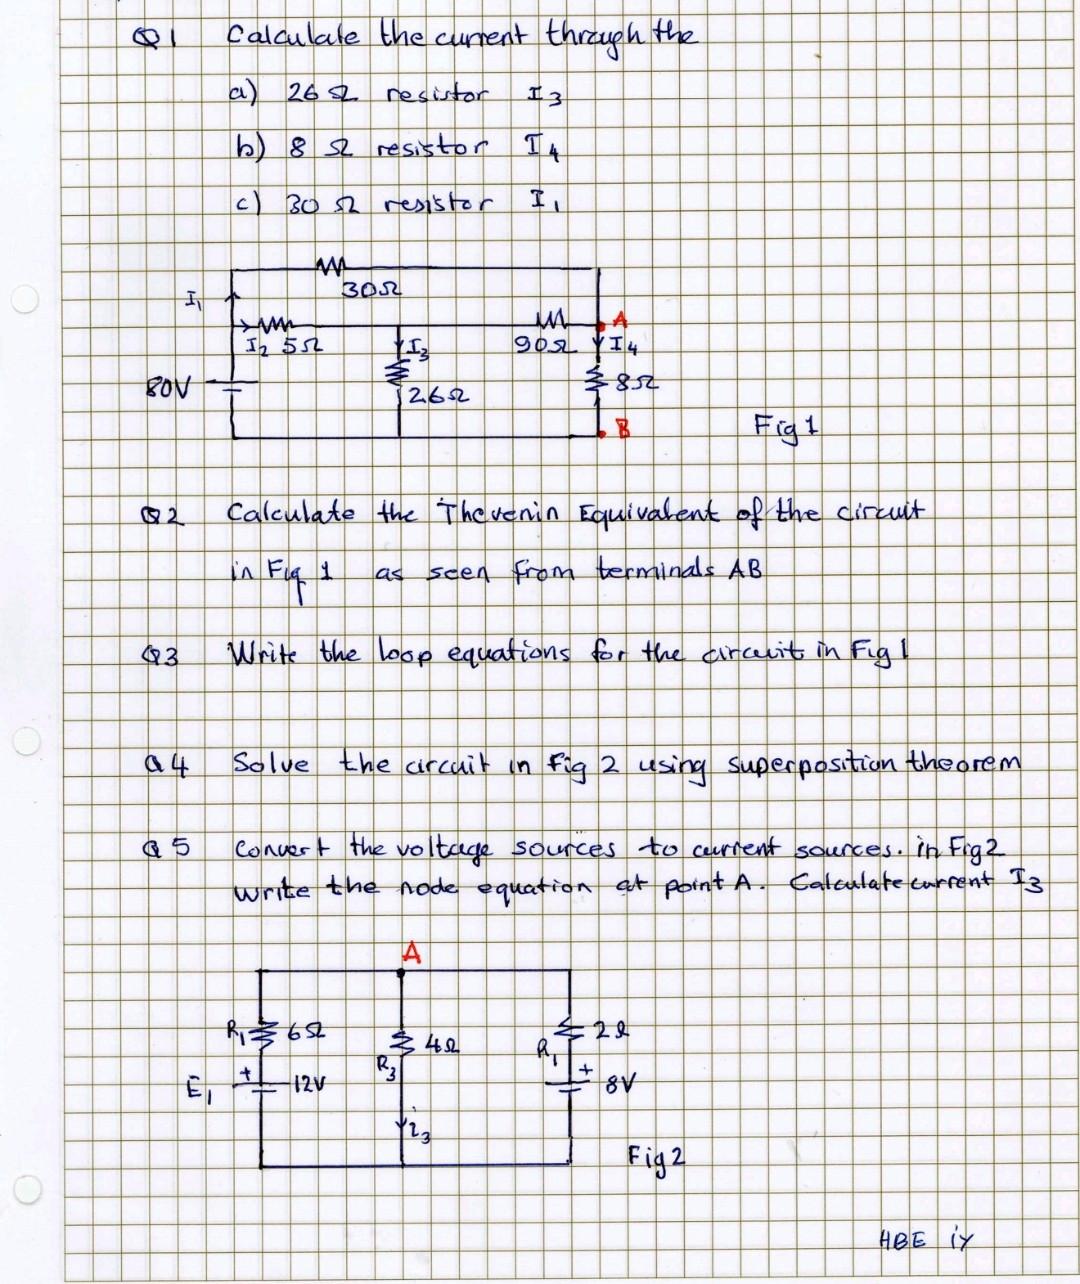 Q1 Calculate the current through the
a) 26 Ω resistor I3
b) 8 Ω resistor I4
c) 30 Ω resistor I1
30Ω
I1
A
I2 5Ω I3 90Ω I4
80V 8Ω
26Ω
B
Fig 1
Q2 Calculate the Thevenin Equivalent of the circuit
in Fig 1 as seen from terminals AB
Q3 Write the loop equations for the circuit in Fig 1
Q4 Solve the circuit in Fig 2 using superposition theorem
Q5 Convert the voltage sources to current sources. in Fig 2
write the node equation at point A. Calculate current I3
A
R1 6Ω 4Ω 2Ω
R3 R1
E1 + 12V + 8V
i3
Fig 2
HBE iy